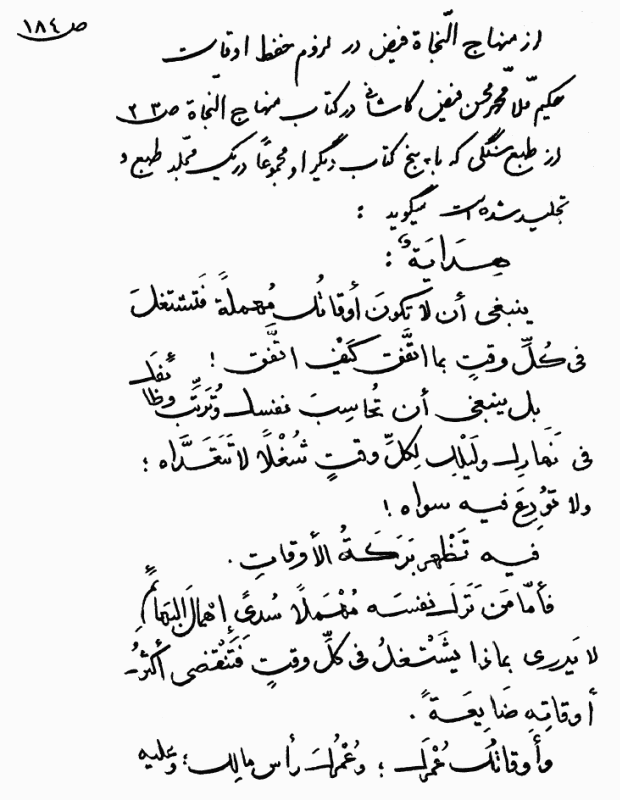 ص ١٨٤
از منهاج النّجاة فیض در لزوم حفظ اوقات
حکیم ملّا محمّد محسن فیض کاشانی در کتاب منهاج النجاة ص ٢٣
از طبع سنگی که با پنج کتاب دیگر او مجموعًا در یک مجلّد طبع و
تجلید شده است میگوید :
هِدَایَةٌ :
ینبغی أن لَا تَکونَ أوقاتُک مُهملةً فَتَشتغلَ
فی کُلِّ وقتٍ بما اتَّفق کَیْفَ اتَّفَقَ !
بل ینبغی أن تُحاسِبَ نفسك وتُرَتِّبَ وظائفك
فی نَهَارِك ولَیْلِك لِکلِّ وقتٍ شُغْلًا لا تَتَعَدَّاه ؛
ولا تُودِعَ فیه سواه !
فیه تَظْهر بَرَکَةُ الأوقاتِ .
فأمّا مَن تَرَكَ نفسَه مُهْمَلًا سُدًی إهْمَالَ البَهَائِمِ
لا یَدری بماذا یَشْتَغلُ فی کلِّ وقتٍ فَتَنْقَضی أکثرُ
أوقاتِهِ ضَایِعَةً .
وأوقاتُك عُمْرُك ؛ وعُمْرُك رأس مالِك ؛ وعلیه